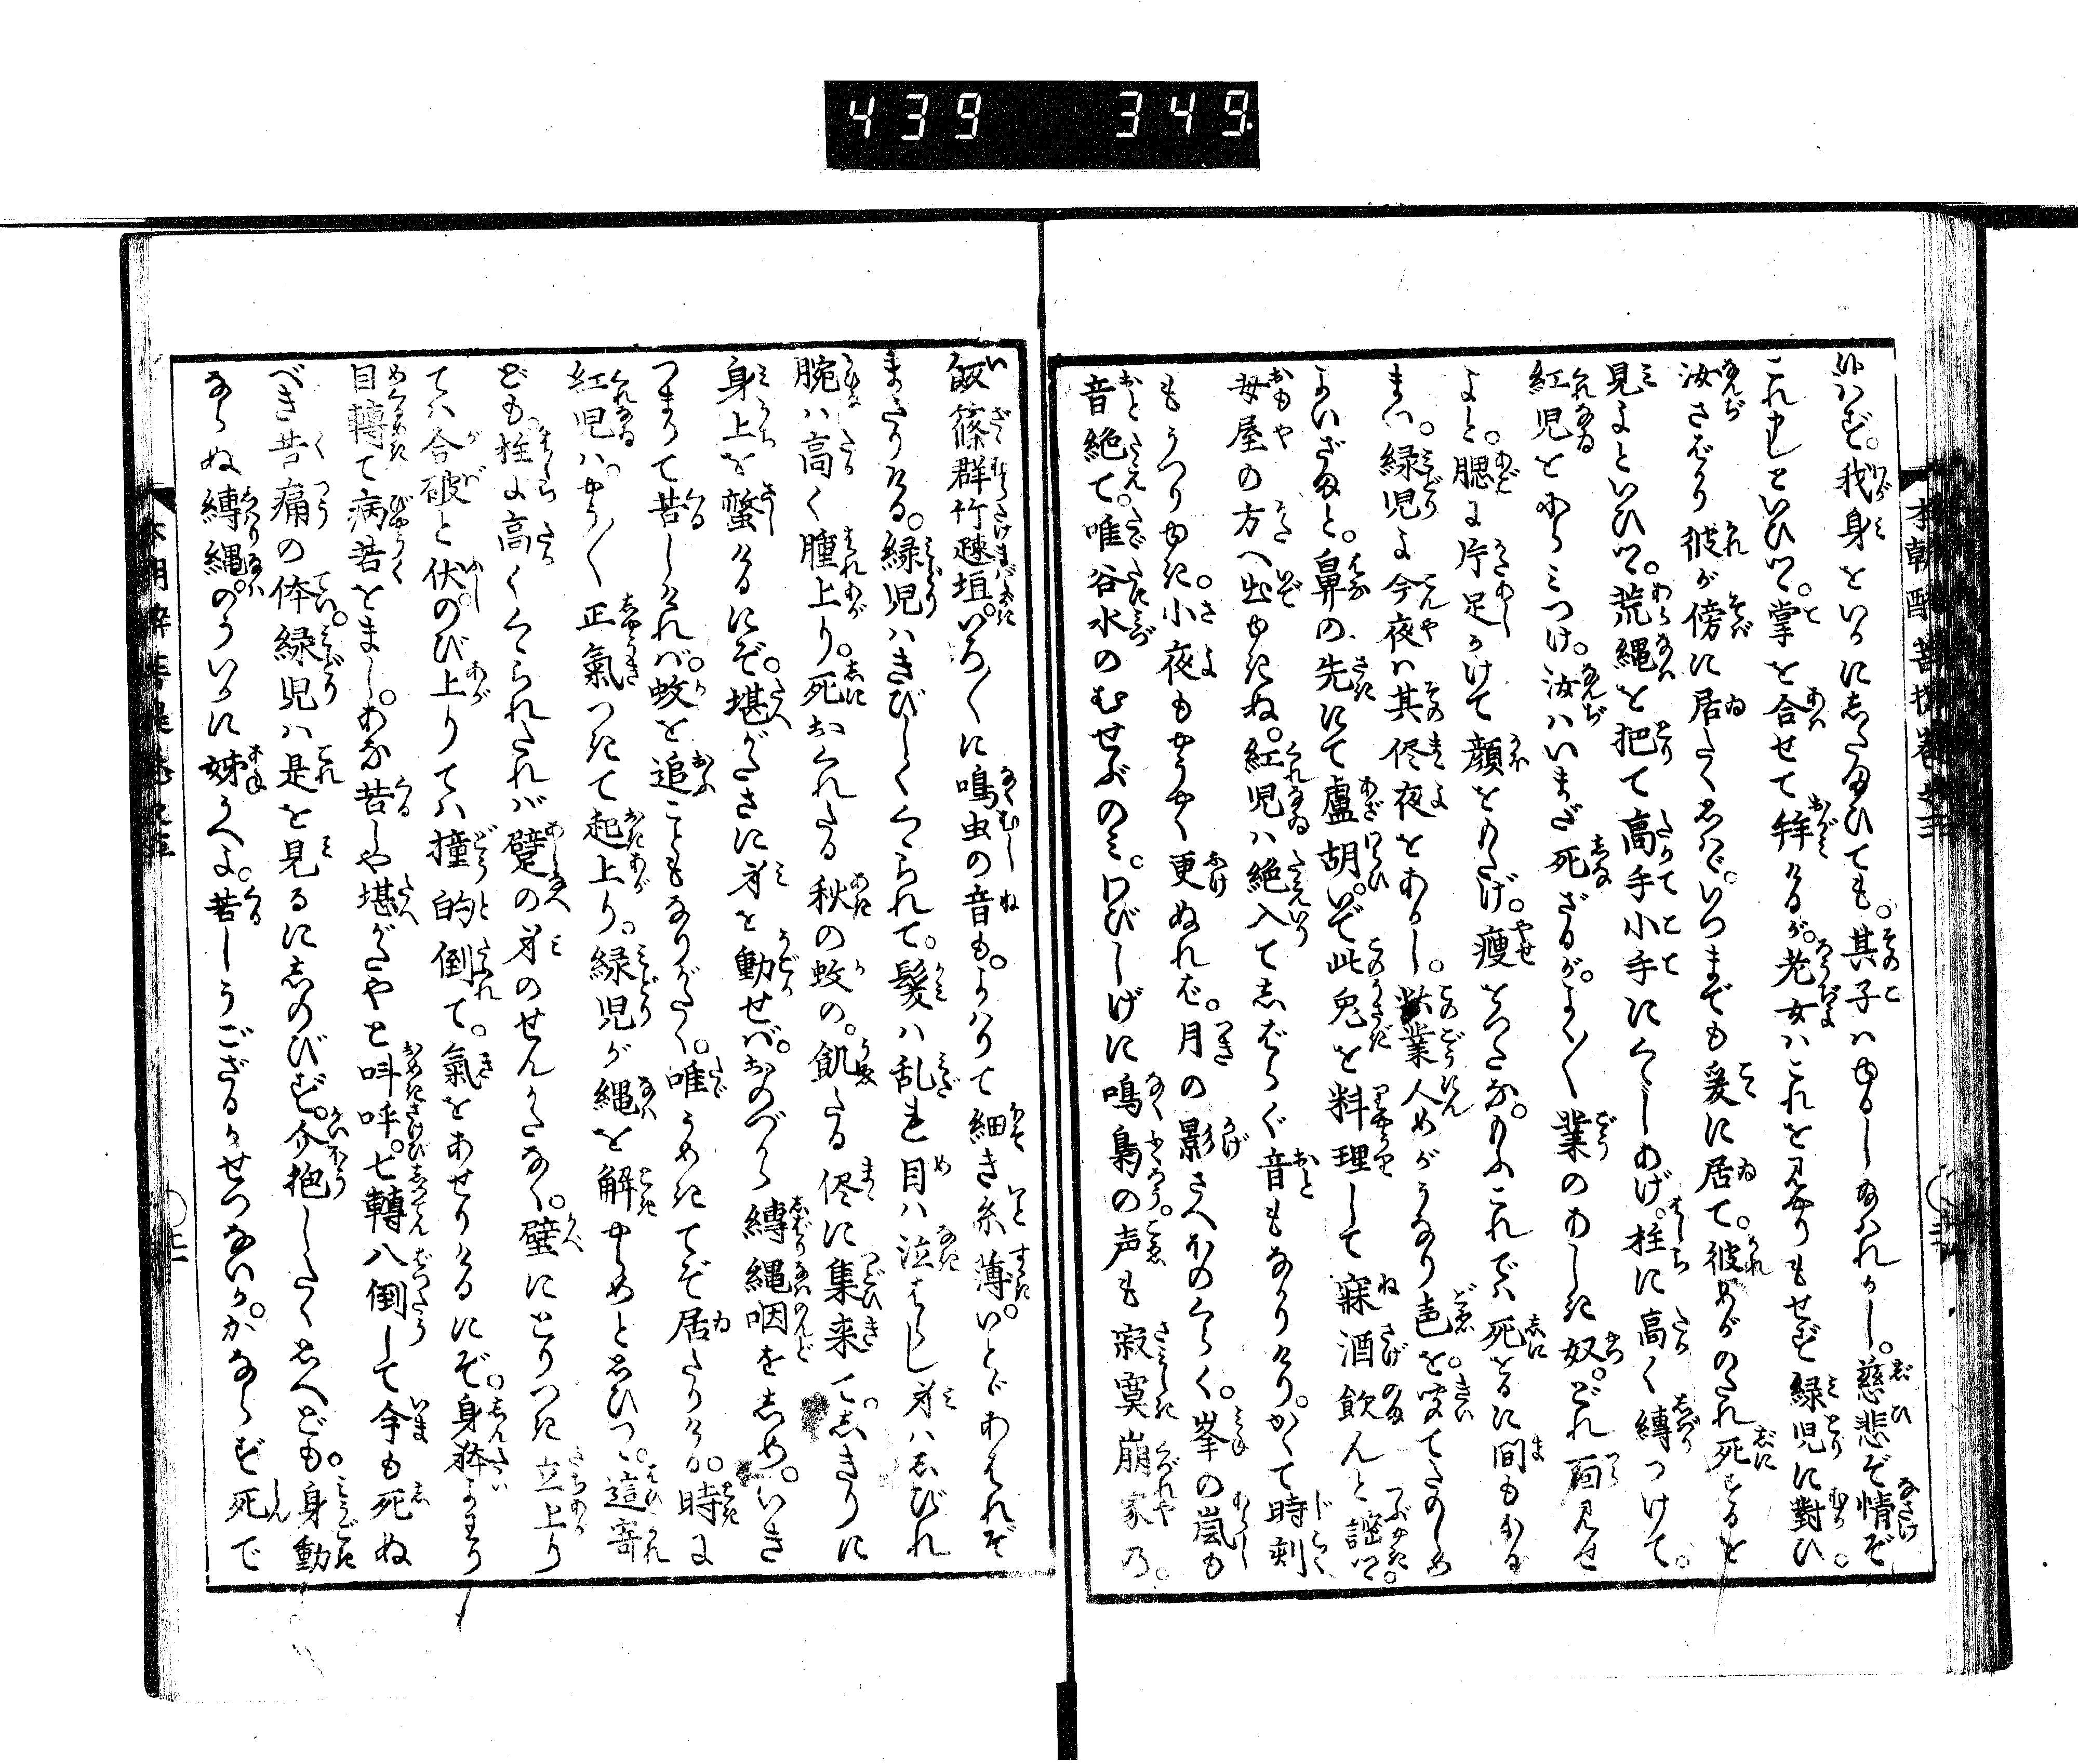 439 349
本朝酔菩提巻之三
ねハず。我身をいかにしたまひても。其子ハゆるし給へれかし。慈悲ぞ情ぞ
これもしといひつ。掌を合せて拝けるが。老女ハこれを見やりもせず緑児に対ひ。
汝さばかり彼が傍に居たくおもハゞ。いつまでも爰に居て。彼めがのたれ死するを
見よといひつ。荒縄を把て高手小手にくゝしあげ。柱に高く縛つけて。
紅児をあらミつけ。汝ハいまだ死ざるが。よく〳〵業のあしき奴。どれ面見せ
よと。腮に片足かけて顔をもたげ。痩をつたな。もふこれでハ死をるに間もある
まい。緑児よ今夜ハ其侭夜をあかし。此業人めがうなり声を。聞てたのしめ
よいざまと。鼻の先にて盧胡。いで此兎を料理して寐酒飲んと謡つ。
母屋の方へ出ゆきぬ。紅児ハ絶入てしばらく音もなかりけり。かくて時刻
もうつりゆき。小夜もやうやく更ぬれば。月の影さへほのくらく。峯の嵐も
音絶て。唯谷水のむせぶのミ。口びしげに鳴梟の声も寂寞崩家の。
飯篠群竹疎垣。いろ〳〵に鳴虫の音も。よハりて細き糸薄。いとゞあはれぞ
まさりける。緑児ハきびしくくゝられて。髪ハ乱れ目ハ泣はらし身ハしびれ
腕ハ高く腫上り。死おくれたる秋の蚊の。飢たる侭に集来て。しきりに
身上を螫けるにぞ。堪がたさに身を動せバ。おのづから縛縄咽をしめ。いき
つまりて苦しけれバ。蚊を追こともなりがたく。唯うめきてぞ居たりける。時に
紅児ハ。やう〳〵正気つきて起上り。緑児が縄を解やらめとおもひつゝ。這寄
ども。柱に高くくゝられたれバ躄の身のせんかたなく。壁にとりつき立上り
てハ合破と伏。のび上りてハ撞的倒て。気をあせりけるにぞ。身躰よわり
目転て病苦をまし。あな苦しや堪がたやと叫呼。七転八倒して今も死ぬ
べき苦痛の体。緑児ハ是を見るにしのびず。介抱したくおもへども。身動
ならぬ縛縄。のういかに姉うへよ。苦しうござるかせつないか。かならず死で
本朝酔菩提巻之三